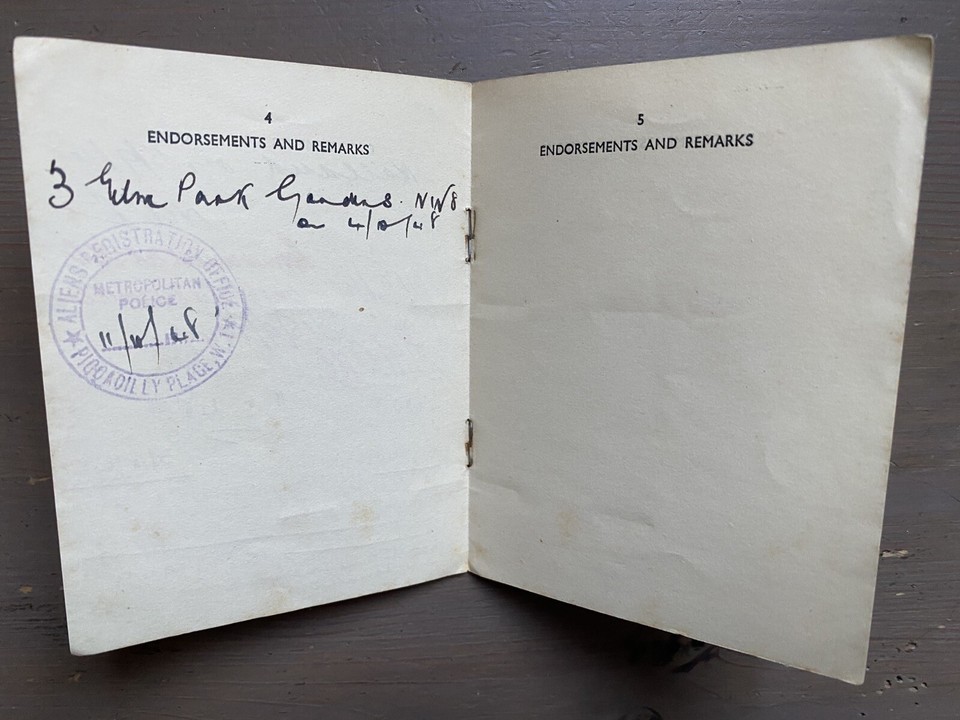 4
ENDORSEMENTS AND REMARKS
3 Park Gardens. NW8
on 4/10/48
ALIENS REGISTRATION OFFICE
METROPOLITAN
POLICE
11/10/48
PICCADILLY PLACE, W.1.
5
ENDORSEMENTS AND REMARKS